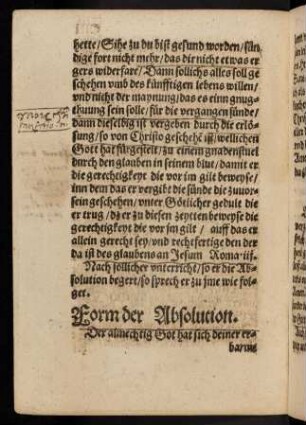 hette / Sihe zu du bist gesund worden / sün-
dige fort nicht mehr / das die nicht etwas er
gers widerfare / Dann sollichs alles soll ge
schehen vmb des künfftigen lebens willen /
vnd nicht der maynung / das es einn gnug-
thuung sein solle / für die vergangen sünde /
dann dieselbig ist vergeben durch die erlö-
sung / so von Christo geschehē ist / wellichen
Gott hat fürgestelt / zu einem gnadenstuel
durch den glauben in seinem blut / damit er
die gerechtigkeyt die vor jm gilt beweyse /
inn dem das er vergibt die sünde die zuuor-
sein geschehen / vnter Götlicher gedult die
er trug / dz er zu diesen zeytten beweyse die
gerechtigkeyt die vor jm gilt / auff das er
allein gerecht sey / vnd rechtfertige den der
da ist des glaubens an Jesum Roma. iij.
Nach sollicher vnterricht / so er die Ab-
solution begert / so sprech er zu jme wie fol-
get.
Form der Absolution.
Der almechtig Got hat sich deiner er-
barme